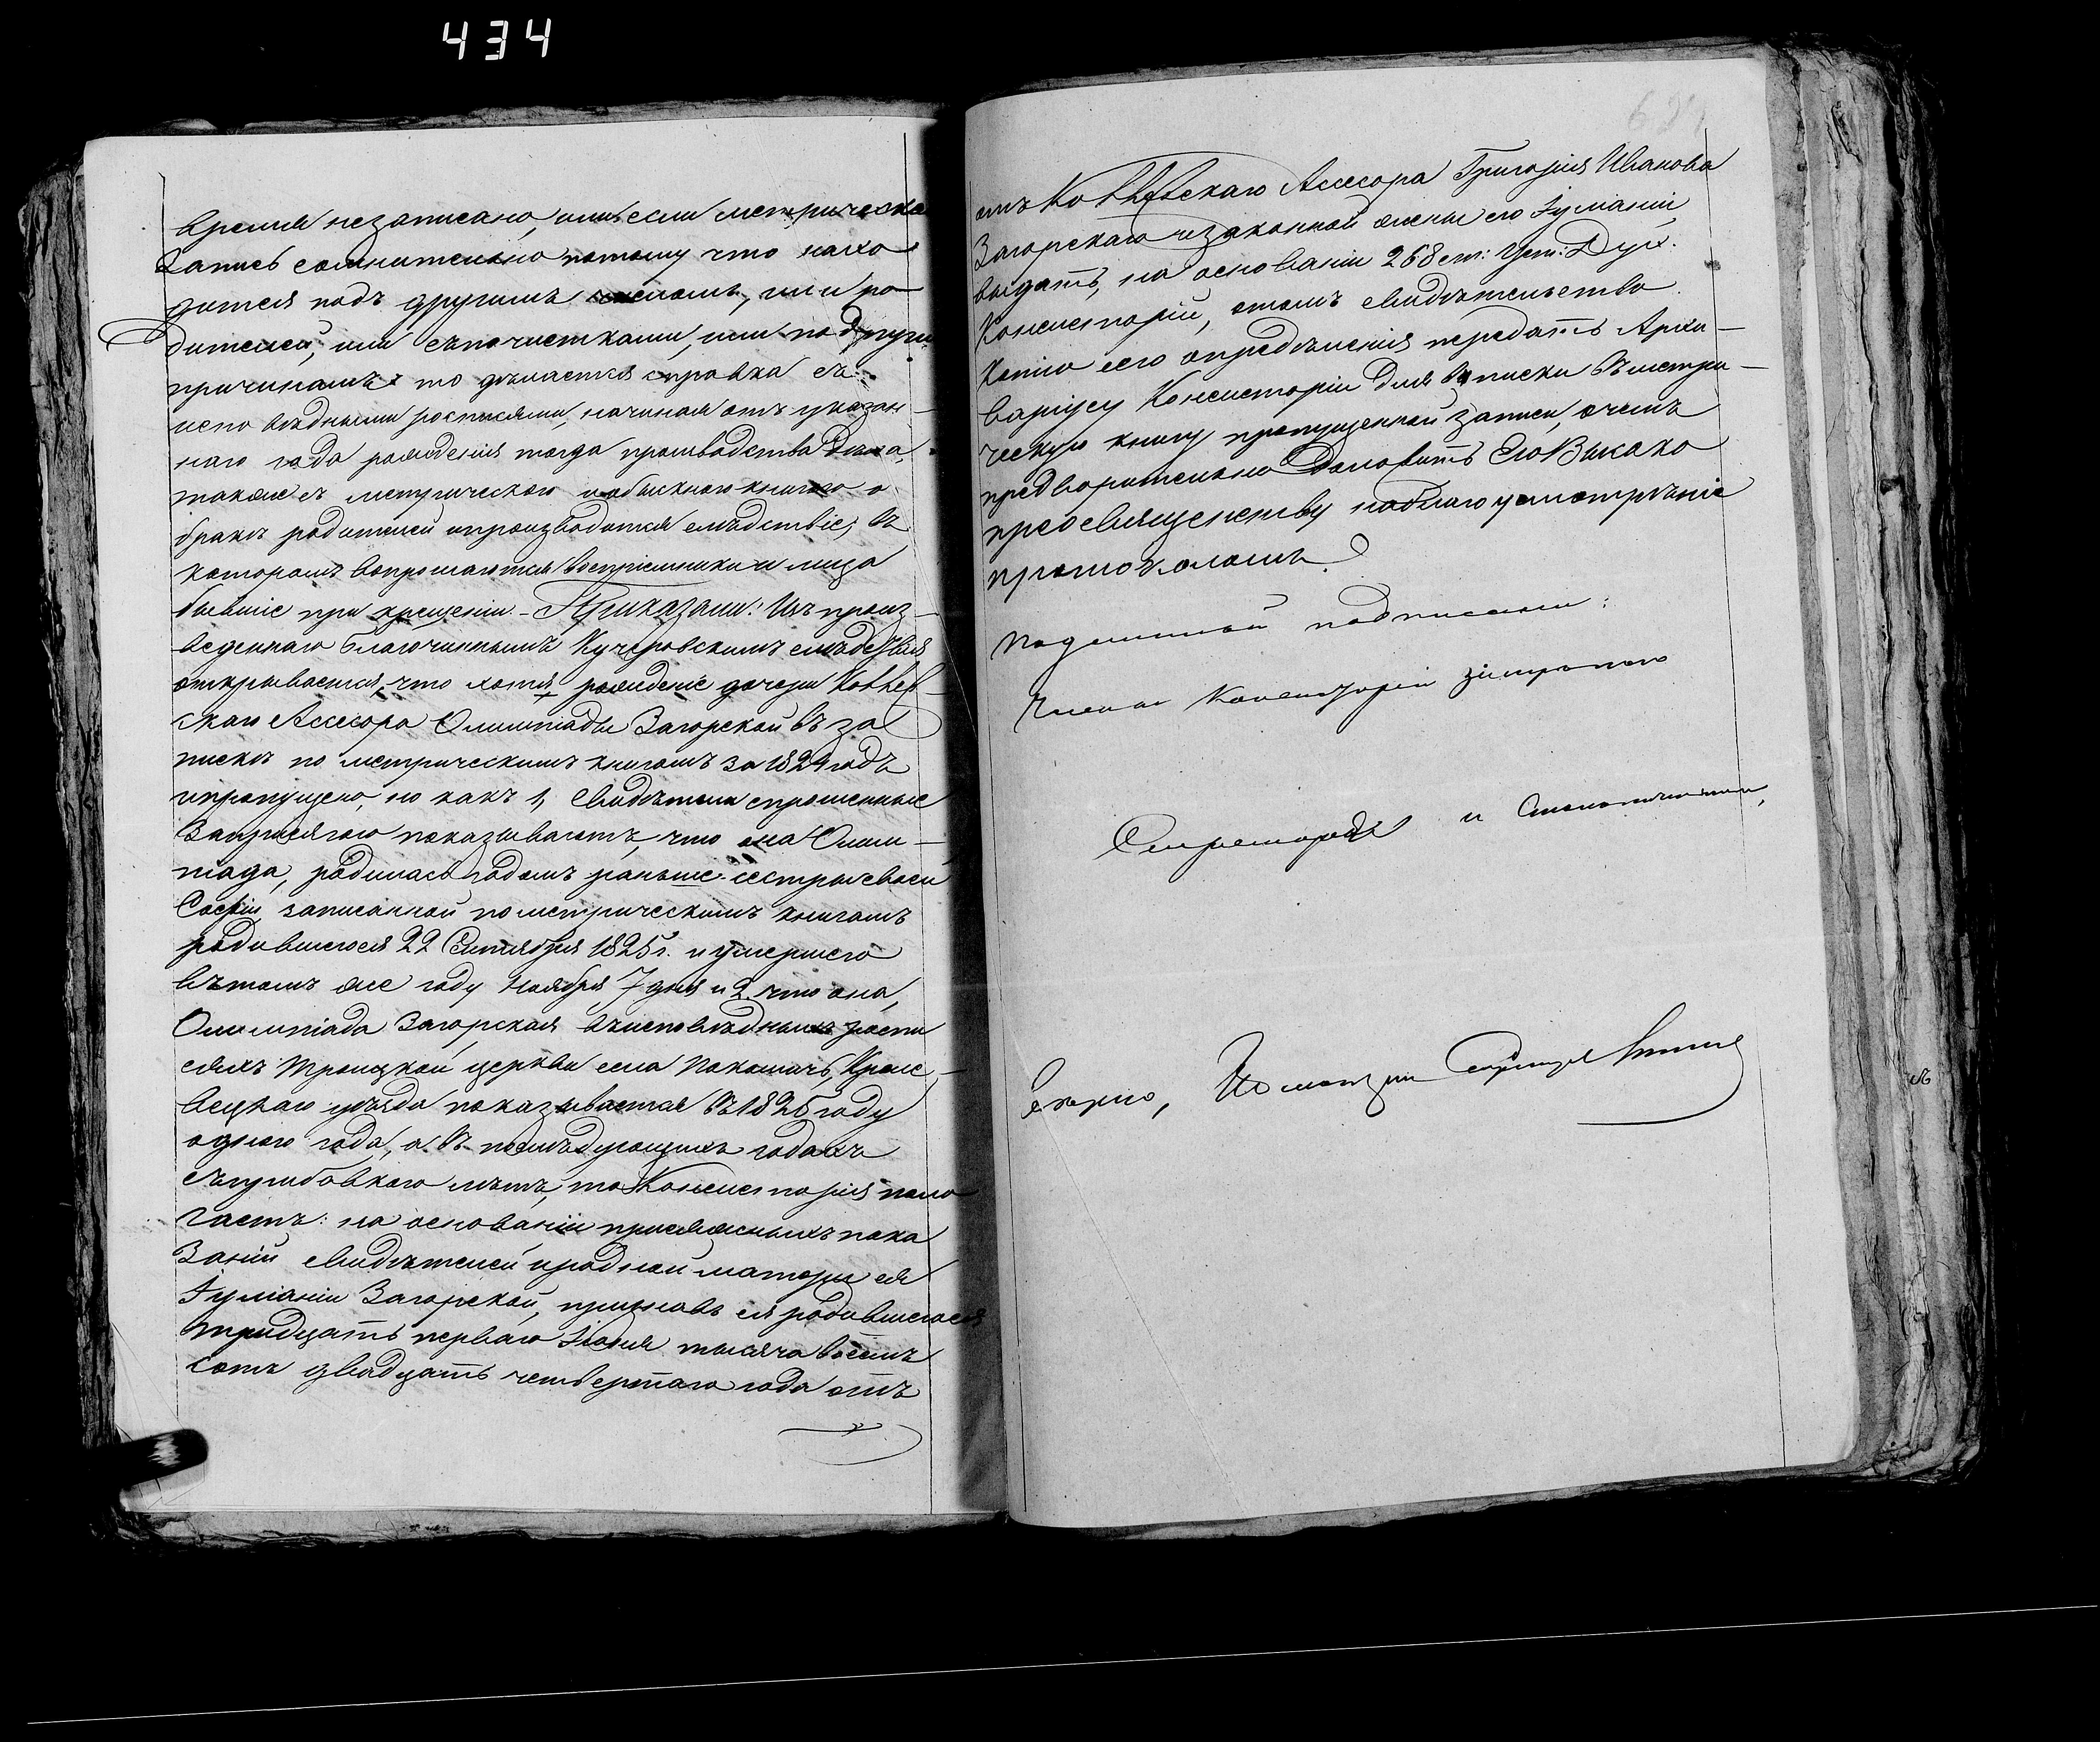 434
время незаписано, или если метрическа
запись сомнительно потому что нахо
дится подъ другимъ числомъ, или ро
дителей, или съ почистками, или по другим
причинамъ то дѣлается справка съ
испо вѣдными росписями, начиная отъ указан
наго года рожденія тогда производства дѣла,
также съ метрическою и обыскною книгою о
бракѣ родителей и производится слѣдствіе, въ
которомъ вопрошаются воспріемники и лица
бывшіе при крещеніи. – Приказали: Изъ произ
веденнаго благочиннымъ Кучеровскимъ слѣдствія
открывается, что хотя рожденіе дочери Коллеж
скаго Ассесора Олимпіады Загорской въ за
пискѣ по метрическимъ книгамъ за 1824 годъ
и пропущено, но какъ 1, свидѣтели спрошенные
за присягою показываютъ, что она Олим –
піада, родилась годомъ раньше сестры своей
Софіи, записанной по метрическимъ книгамъ
родившеюся 22 Сентября 1825 г. и умершею
въ томъ же году Ноября 7 дня и 2. что она,
Олимпіада Загорская въ исповѣдныхъ роспи
сяхъ Троицкой церкви села Покошичъ, Кроле
вецкаго уѣзда показывается въ 1825 году
одного года, а въ послѣдующихъ годахъ
съ прибовкою лѣтъ, то Консисторія пола
гаетъ: на основаніи присяжныхъ пока
заній свидѣтелей и родной матери ея
Іуліаніи Загорской, признавъ ея родившеюся
тридцать перваго Іюля тысяча восемь
сотъ двадцать четвертаго года отъ
отъ Коллежскаго Ассесора Григорія Иванова
Загорскаго и законной жены его Іуліаніи
выдать, на основаніи 268 ст: Уст: Дух.
Консисторій, о томъ свидѣтельство
Копію сего опредѣленія передать Архи –
варіусу Консисторіи для вписки въ метри –
ческую книгу пропущенной записи, о чемъ
предворительно доложить Его Высоко
преосвященству на благоусмотрѣніе
протоколомъ.
Подлинный подписали:
Члены Консисторіи
Секретарь и Столоначальникъ,
Вѣрно,